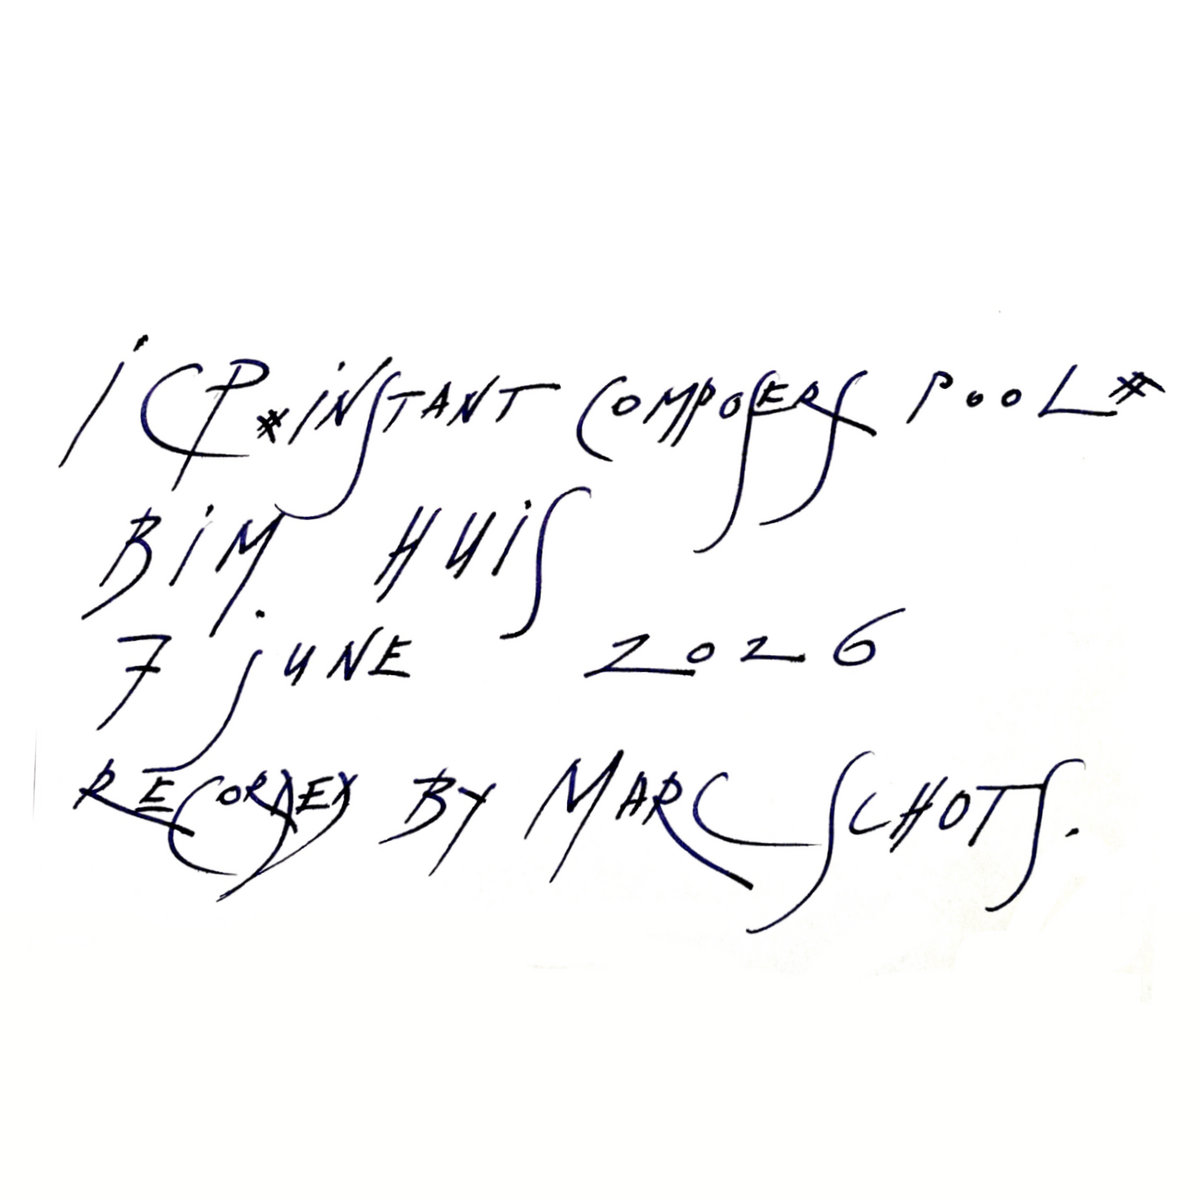 iCP*iNSTANT COMPOSERS POOL*
BiM HUiS
7 jUNE 2026
RECORDED BY MARC SCHOTS.